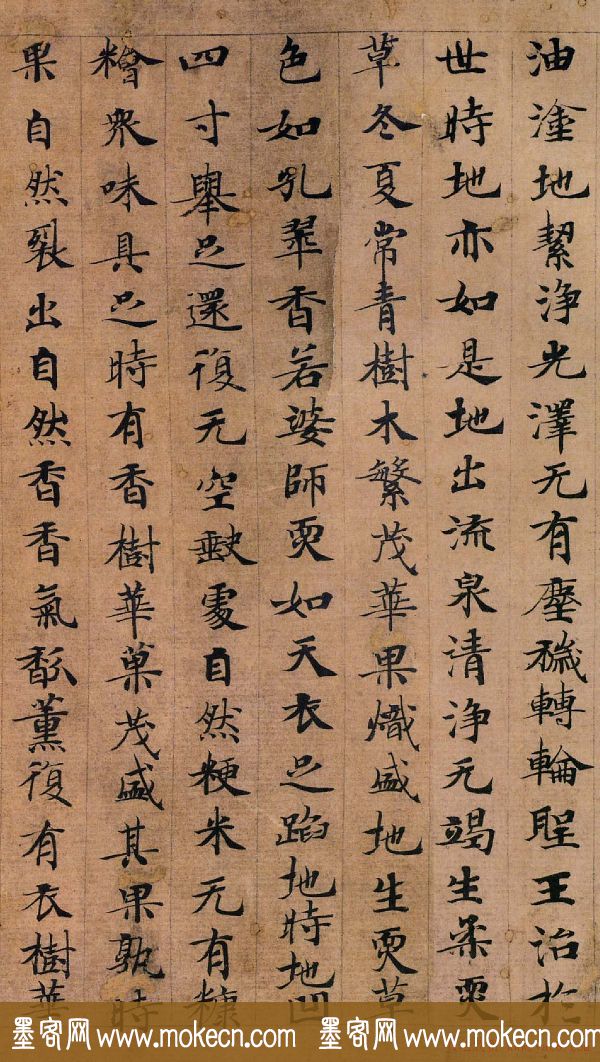 油塗地絜浄光澤无有塵穢轉輪聖王治於
世時地亦如是地出流泉清浄无竭生柔耎
草冬夏常青樹木繁茂華果熾盛地生耎草
色如孔翠香若婆師耎如天衣足蹈地時地凹
四寸舉足還復无空缺處自然粳米无有糠
糩眾味具足時有香樹華菓茂盛其果孰時
果自然裂出自然香香氣馝薰復有衣樹華
墨客网 www.mokecn.com 墨客网 www.mokecn.com